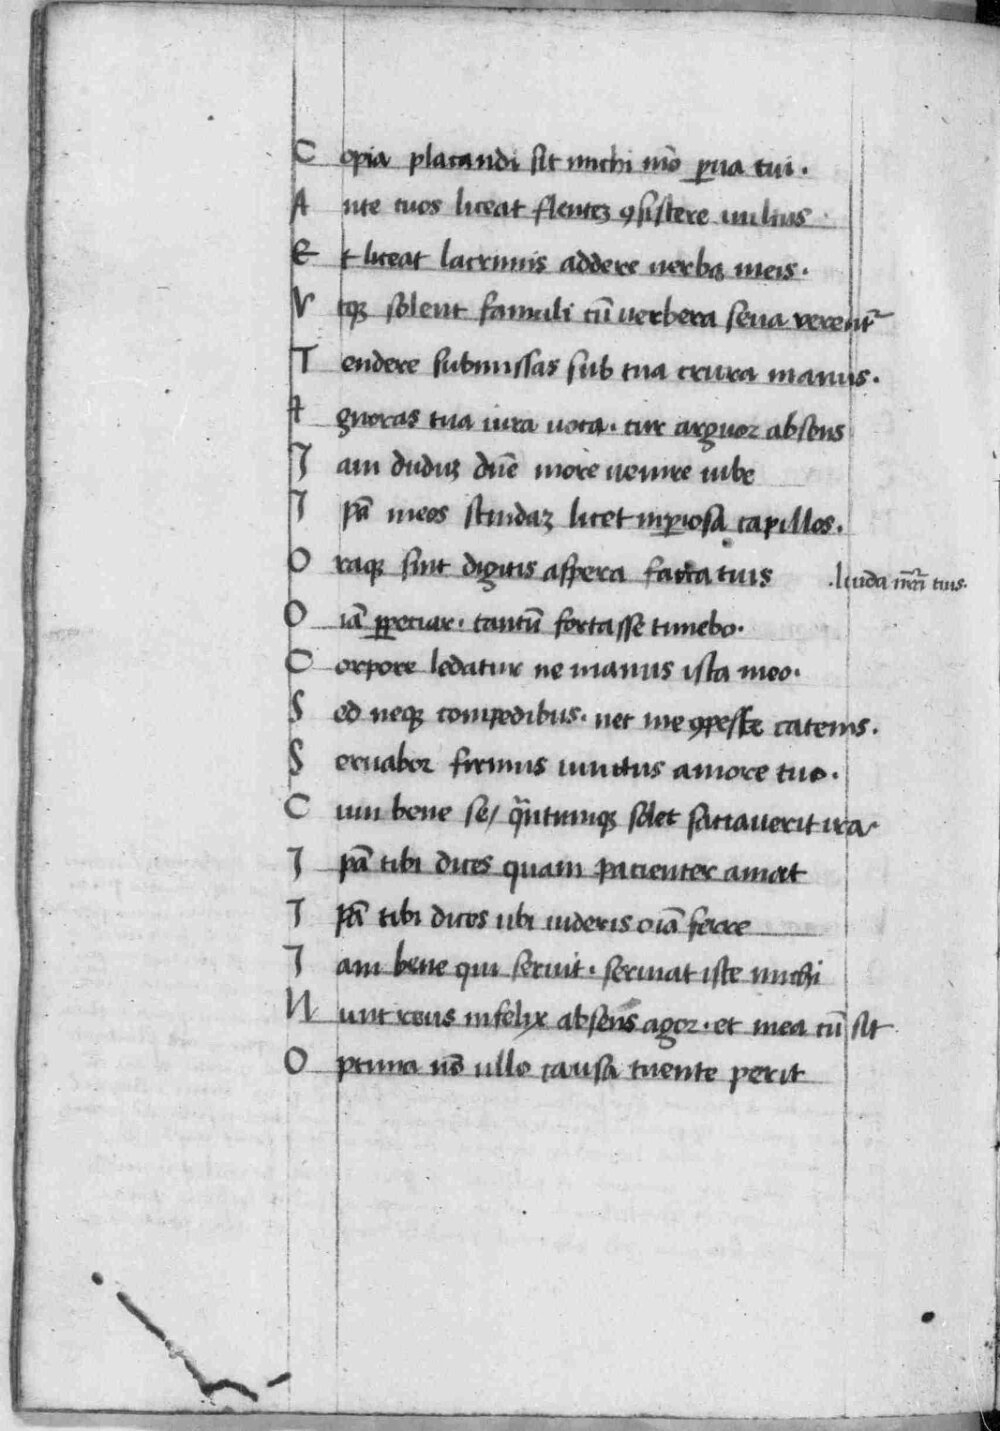 Copia placandi sit michi mō ꝑua tui.
Ante tuos liceat flenteꝫ ꝯsistere uultus
Et liceat lacrimis addere uerba meis.
Vtqꝫ solent famuli cū uerbera seua verent᷑
Tendere submissas sub tua crura manus.
Ignoras tua iura uoca. cur arguor absens
Iam duduꝫ dn̄e more uenire iube
Ipā meos scindaꝫ licet inꝑiosa capillos.
Oraque sint digitis aspera facta tuis .liuida tuis.
Oīa ꝑpeciar. tantū fortasse timebo.
Corpore ledatur ne manus ista meo.
Sed neqꝫ compedibus. nec me ꝯpesce catenis.
Seruabor firmus iunctus amore tuo.
Cum bene se/ qn̄tumqꝫ solet saciauerit ira
Ipā tibi dices quam pacienter amat
Ipā tibi dices ubi uideris oīa ferre
Iam bene qui seruit. seruiat iste michi
Nunc reus infelix absens agor. et mea cū sit
Optima nō ullo causa tuente perit